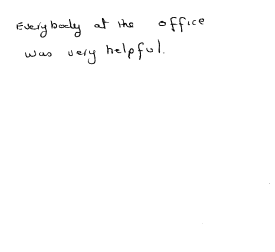 Everybody at the office
was very helpful.